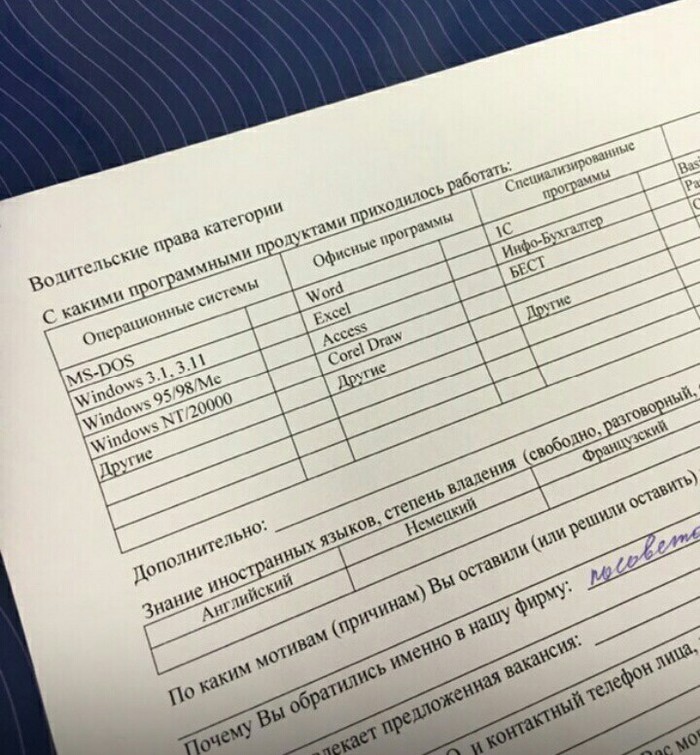 Водительские права категории
С какими программными продуктами приходилось работать:
Операционные системы
Офисные программы
Специализированные программы
MS-DOS
Word
1С
Windows 3.1, 3.11
Excel
Инфо-Бухгалтер
Windows 95/98/Me
Access
БЕСТ
Windows NT/20000
Corel Draw
Другие
Другие
Другие
Дополнительно:
Знание иностранных языков, степень владения (свободно, разговорный,
Английский
Немецкий
Французский
По каким мотивам (причинам) Вы оставили (или решили оставить)
Почему Вы обратились именно в нашу фирму:
предложенная вакансия:
и контактный телефон лица,